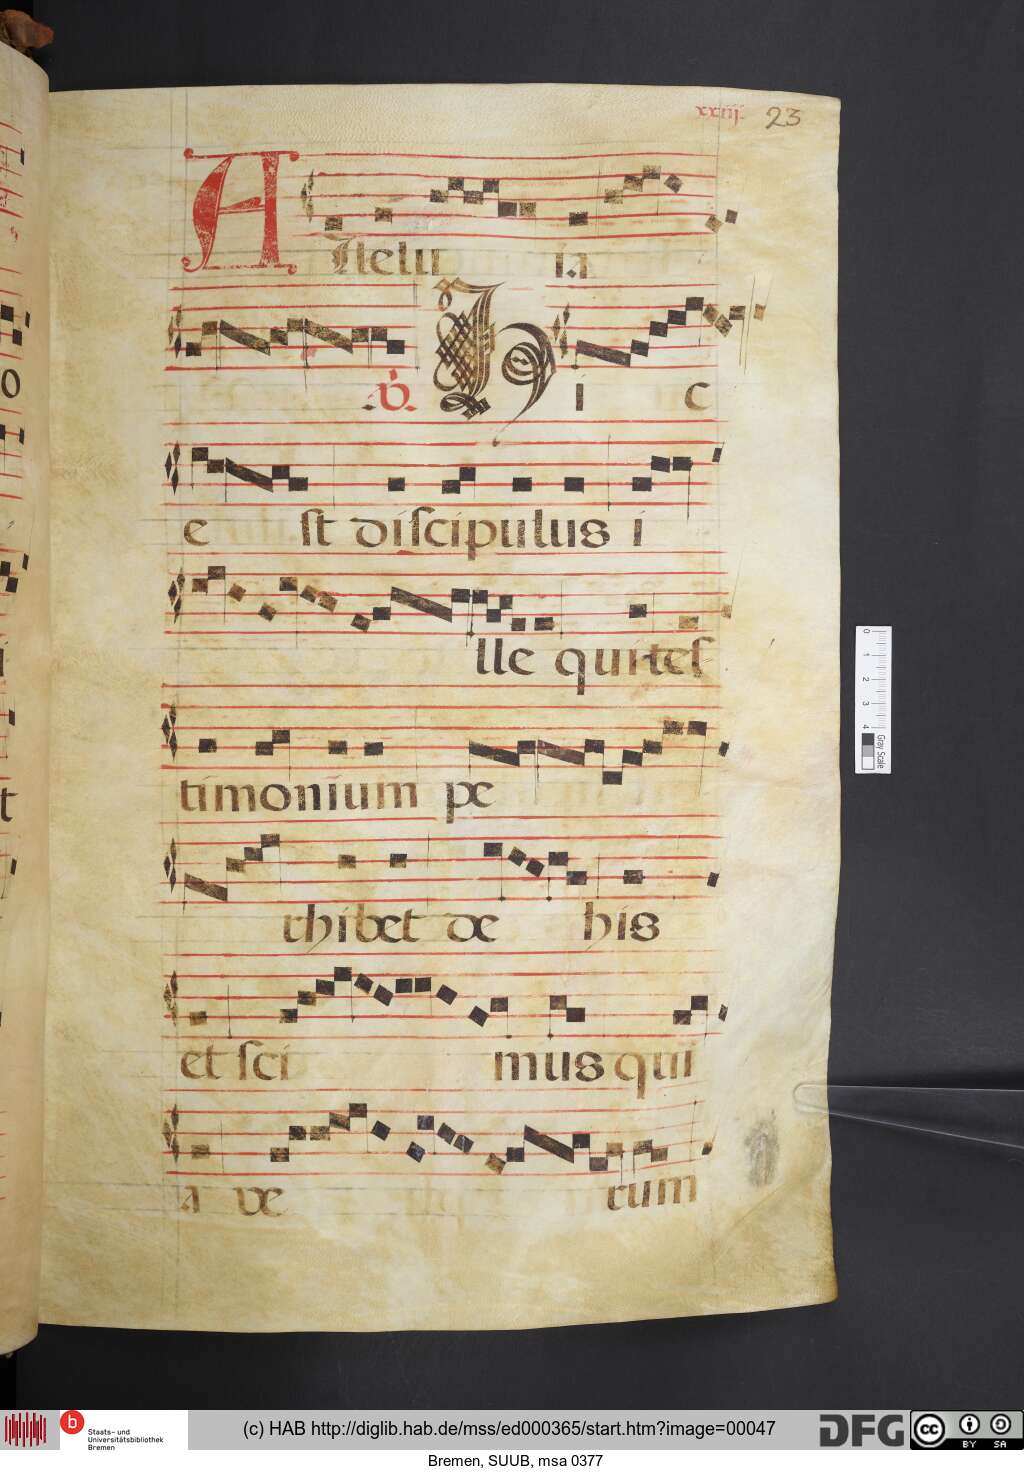 xxiij. 23
Allelu ia
.V. Hi c
e st discipulus i
lle qui tes
timonium pe
rhibet de his
et sci mus qui
a ve rum
o
i
t
0 1 2 3 4 Gray Scale
b Staats- und Universitätsbibliothek Bremen
(c) HAB http://diglib.hab.de/mss/ed000365/start.htm?image=00047
DFG
cc BY SA
Bremen, SUUB, msa 0377